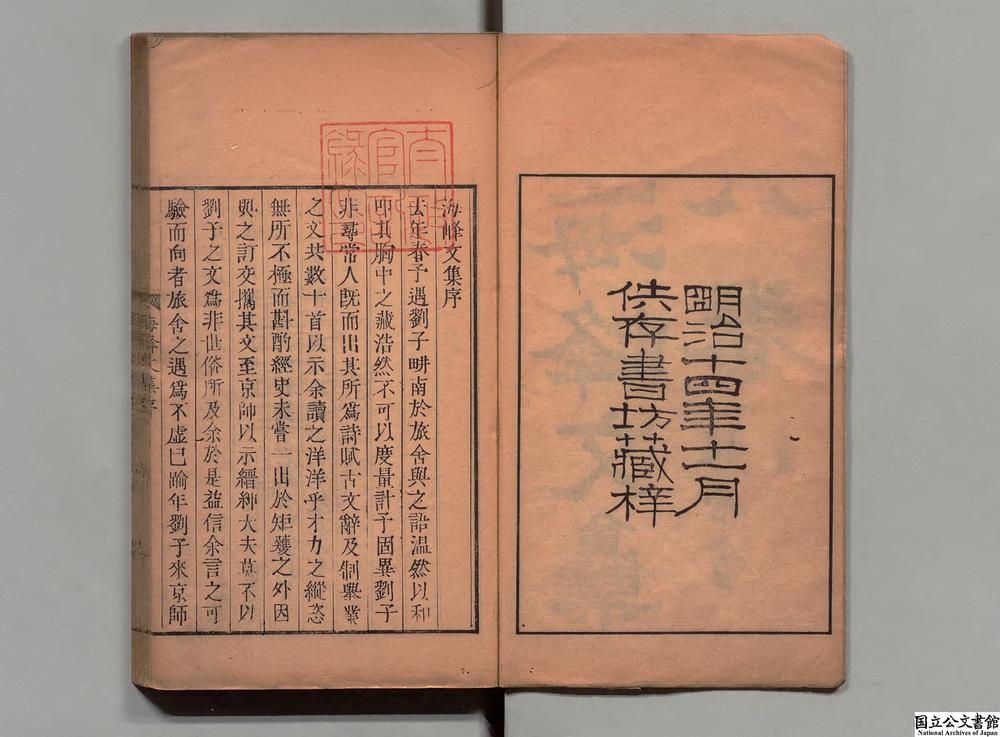 明治十四年十一月
供存書坊藏梓
海峰文集序
去年春予遇劉子畊南於旅舍與之語温然以和
叩其胸中之藏浩然不可以度量計予固異劉子
非尋常人既而出其所爲詩賦古文辭及制舉業
之文共數十首以示余讀之洋洋乎才力之縱恣
無所不極而斟酌經史未嘗一出於矩矱之外因
與之訂交攜其文至京師以示縉紳大夫莫不以
劉子之文爲非世俗所及余於是益信余言之可
驗而向者旅舍之遇爲不虛已踰年劉子來京師
海峰文集序
国立公文書館
National Archives of Japan